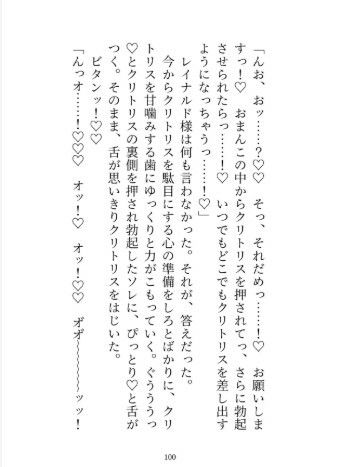 「んお、おッ……？♡♡　そっ、それだめっ……！♡　お願いしま
すっ！♡　おまんこの中からクリトリスを押されてっ、さらに勃起
させられたらっ……！♡　いつでもどこでもクリトリスを差し出す
ようになっちゃうっ……！♡」
レイナルド様は何も言わなかった。それが、答えだった。
今からクリトリスを駄目にする心の準備をしろとばかりに、クリ
トリスを甘噛みする歯にゆっくりと力がこもっていく。ぐうううっ
♡とクリトリスの裏側を押され勃起したソレに、ぴっとり♡と舌が
つく。そのまま、舌が思いきりクリトリスをはじいた。
ビタンッ！♡♡
「んっオ……！♡♡♡　オッ！♡　オッ！♡♡　オ゛オ゛〜〜〜〜〜ッッ！
100